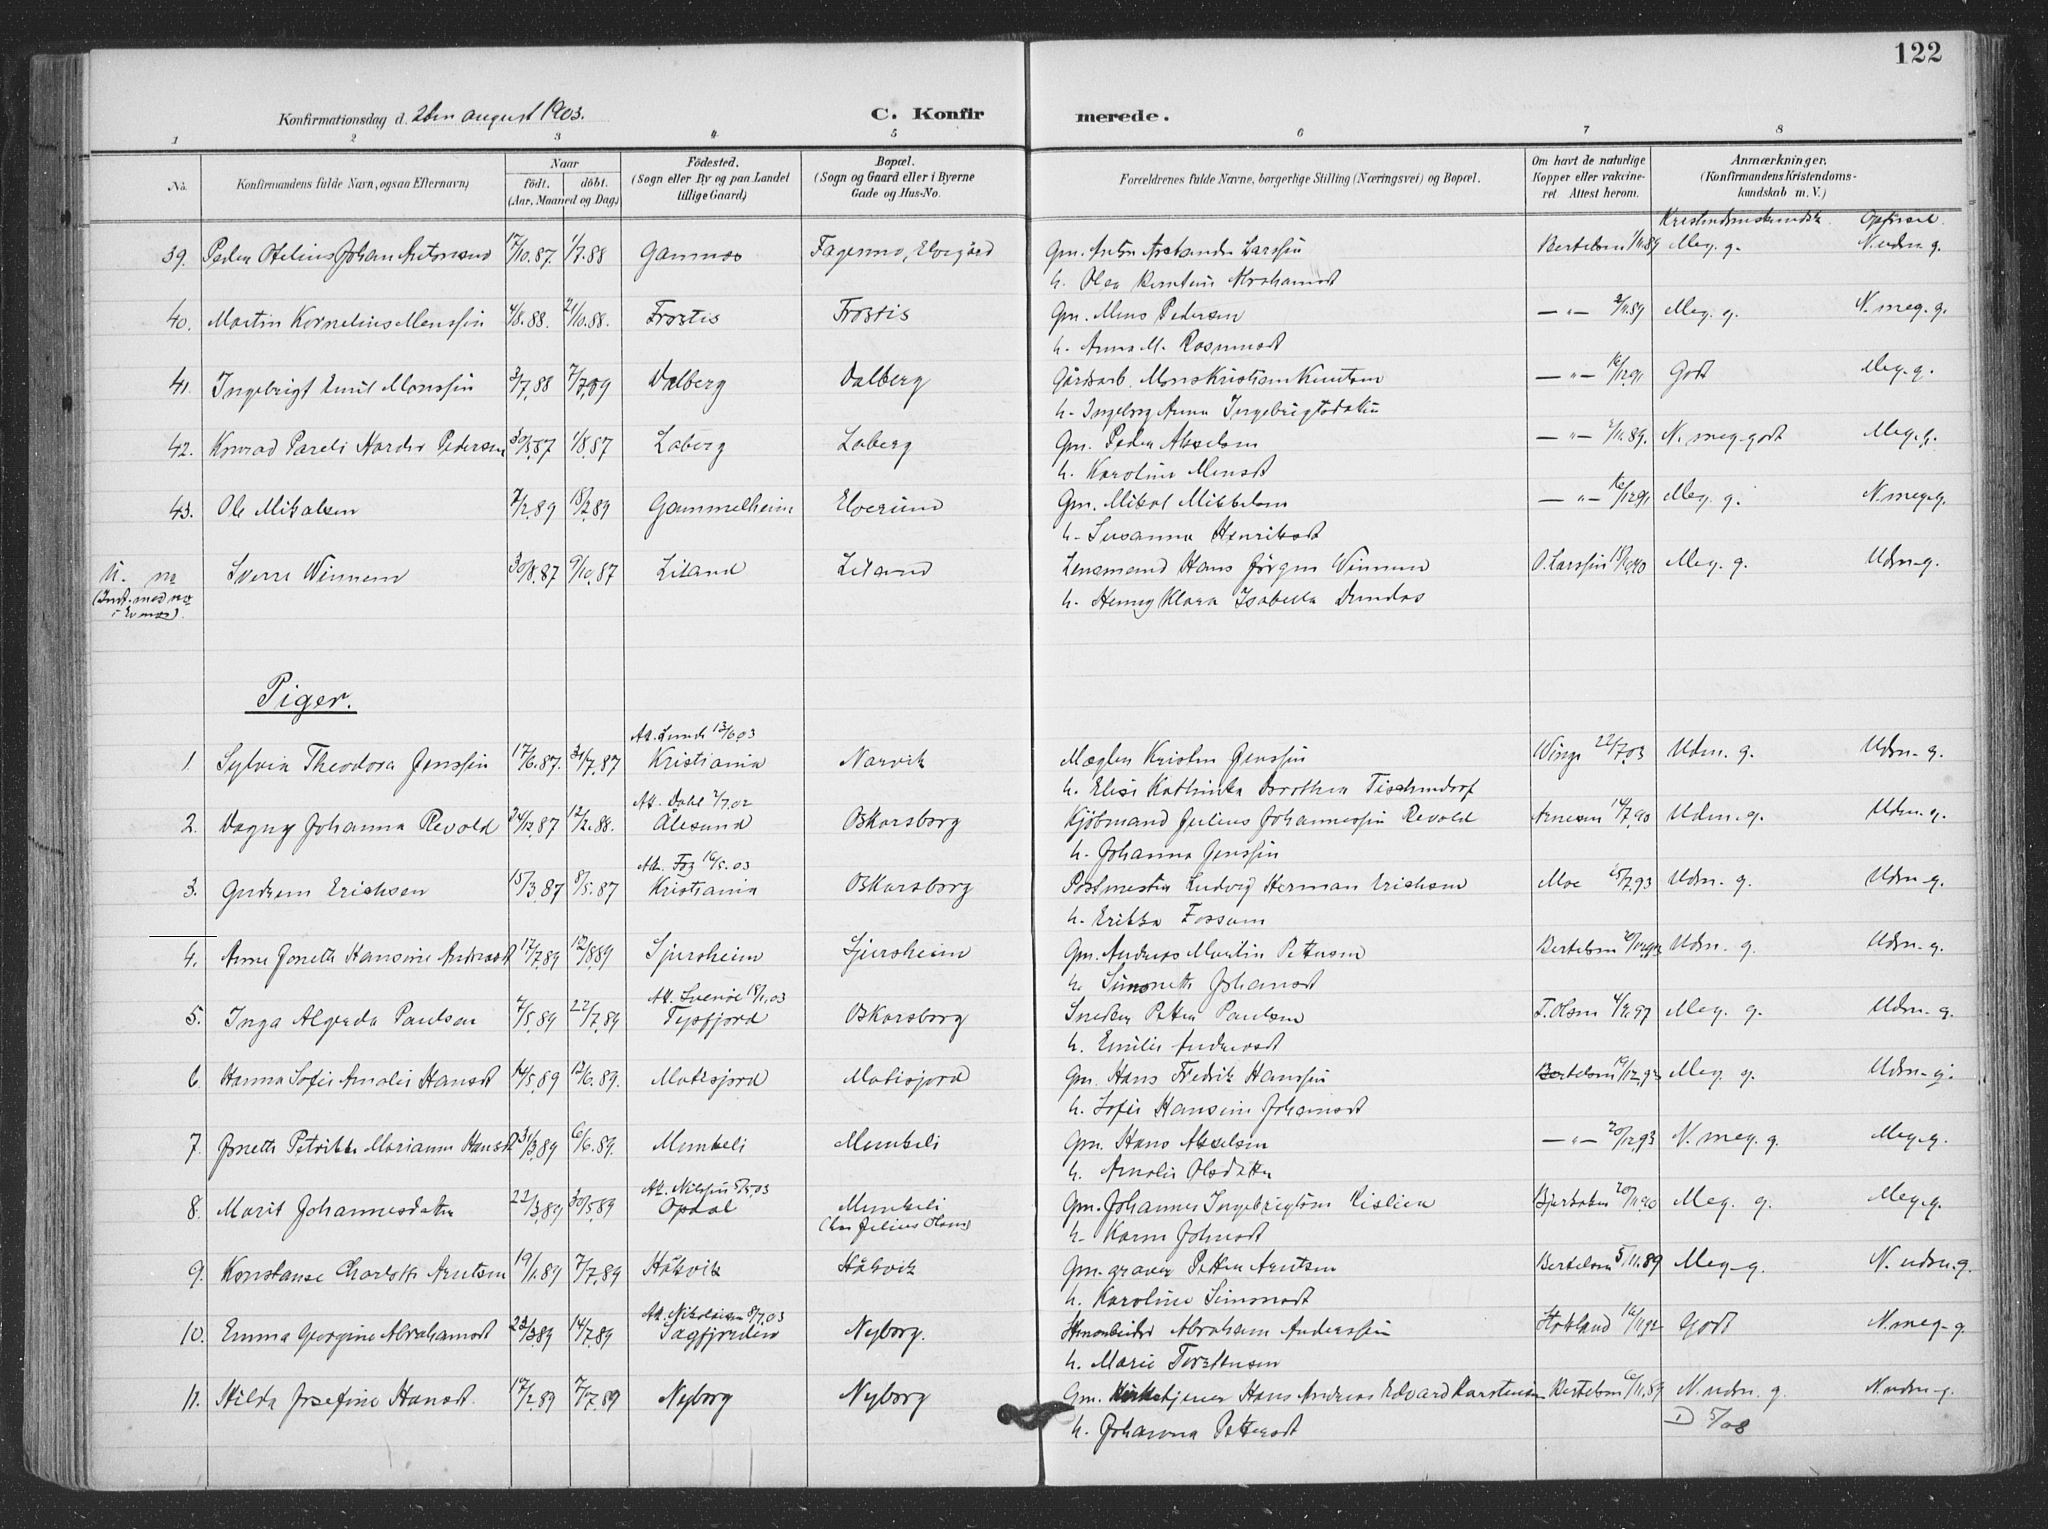 122
Konfirmationsdag d. 2den august 1903.
C. Konfirmerede.
1 2 3 4 5 6 7 8
No. Konfirmandens fulde Navn, ogsaa Efternavn) Naar født. døbt. (Aar, Maaned og Dag) Fødested. (Sogn eller By og paa Landet tillige Gaard) Bopæl. (Sogn og Gaard eller i Byerne Gade og Hus-No. Forældrenes fulde Navne, borgerlige Stilling (Næringsvei) og Bopæl. Om havt de naturlige Kopper eller vakcineret Attest herom. Anmærkninger. (Konfirmandens Kristendomskundskab m. V.)
Kristendomskundsk. Opførsel.
39. Peder Ofelius Johan Antonsen 17/10.87. 1/7.88 Gamnes Fagermo, Elvegård Gm. Anton Larssen Bertelsen 1/11.89 Meg. g. N. udm. g.
h. Olea Abrahamsd
40. Martin Kornelius Monssen 4/8.88. 21/10.88. Frostis Frostis Gm. Mons Pedersen — " — 2/11.89 Meg. g. N. meg. g.
h. Anna M. Rasmusd
41. Ingebrigt Emil Monssen 3/7.88 7/7.89 Dalberg Dalberg Gårdarb. Mons Kristian Knutsen — " — 16/12.91 Godt Meg. g.
h. Ingeborg Anna Ingebrigtsdatter
42. Konrad Pareli Nordis Pedersen 30/5.87 1/8.87 Laberg Laberg Gm. Peder Akselsen — " — 2/11.89. N. meg. godt Meg. g.
h. Karoline Monsd
43. Ole Mikalsen 7/2.89 18/2.89 Gammelheim Elverund Gm. Mikal Mikkelsen — " — 16/12.91 Meg. g. N. meg. g.
h. Susanna Henriksd
U. no Sverre Winnem 30/8.87 9/10.87 Liland Liland Lensmand Hans Jørgen Winnem O. Larssen 18/11.90 Meg. g. Udm. g.
(Indt. med no h. Henny Klara Isabella Dundas
i Evenes).
Piger.
Att. Lunde 13/6.03
1. Sylvia Theodora Jenssen 17/6.87. 31/7.87 Kristiania Narvik Mægler Kristen Jenssen Winge 22/7.03 Udm. g. Udm. g.
h. Elise Kathinka Dorothea Tischendorf
Att. Dahl 2/7.02
2. Dagny Johanna Revold 24/12.87 12/2.88. Ålesund Oskarsborg Kjøbmand Julius Johannessen Revold Arnesen 14/7.90 Udm. g. Udm. g.
h. Johanna Jenssen
Att. 16/5.03
3. Gudrun Erichsen 15/3.87 8/5.87 Kristiania Oskarsborg Postmester Ludvig Herman Erichsen Moe 15/7.93 Udm. g. Udm. g.
h. Erikka Fossum
4. Anne Jonette Hansine Andreasd 17/7.89 12/8.89 Sjursheim Sjursheim Gm. Andreas Martin Pettersen Bertelsen 20/12.93 Udm. g. Udm. g.
h. Simonette Johansd
Att. Svenøe 18/1.03
5. Inga Algerda Paulsen 7/5.89 22/7.89 Tysfjord Oskarsborg Snedker Petter Paulsen T. Olsen 4/9.97 Meg. g. Udm. g.
h. Emilie Andreasd
6. Hanna Sofie Amalie Hansd 14/5.89 12/6.89. Matisjord Matisjord Gm. Hans Fredrik Hanssen Bertelsen 19/12.93 Meg. g. Udm. g.
h. Sofie Hansine Johansd
7. Jonette Petrikke Marianne Hansd 31/3.89 6/6.89. Menkeli Menkeli Gm. Hans Akselsen — " — 20/12.93 N. meg. g. Meg. g.
h. Amalie Olsdatter
Att. Nilssen 5/5.03
8. Marit Johannesdatter 22/3.89 30/5.89 Opdal Menkeli Gm. Johannes Ingebrigtsen Rislien Bjerkaker 20/11.90 Meg. g. Meg. g.
(hos Julius Olsen) h. Karen Johnsd
9. Konstanse Charlotte Arntsen 19/1.89 7/7.89 Håkvik Håkvik Gm. graver Petter Arntsen Bertelsen 5/11.89 Meg. g. N. udm. g.
h. Karoline Simonsd
Att. Nikolaisen 8/7.03
10. Emma Georgine Abrahamsd 23/3.89 14/7.89 Sagfjorden Nyborg. Abraham Anderssen Hokland 16/11.92 Godt N. meg. g.
h. Marie Torstensen
11. Hilda Josefine Hansd. 17/2.89 7/7.89 Nyborg Nyborg Gm. Kirketjener Hans Andreas Edvard Karstensen Bertelsen 6/11.89 N. udm. g. N. udm. g.
h. Johanna Pettersd D 5/08